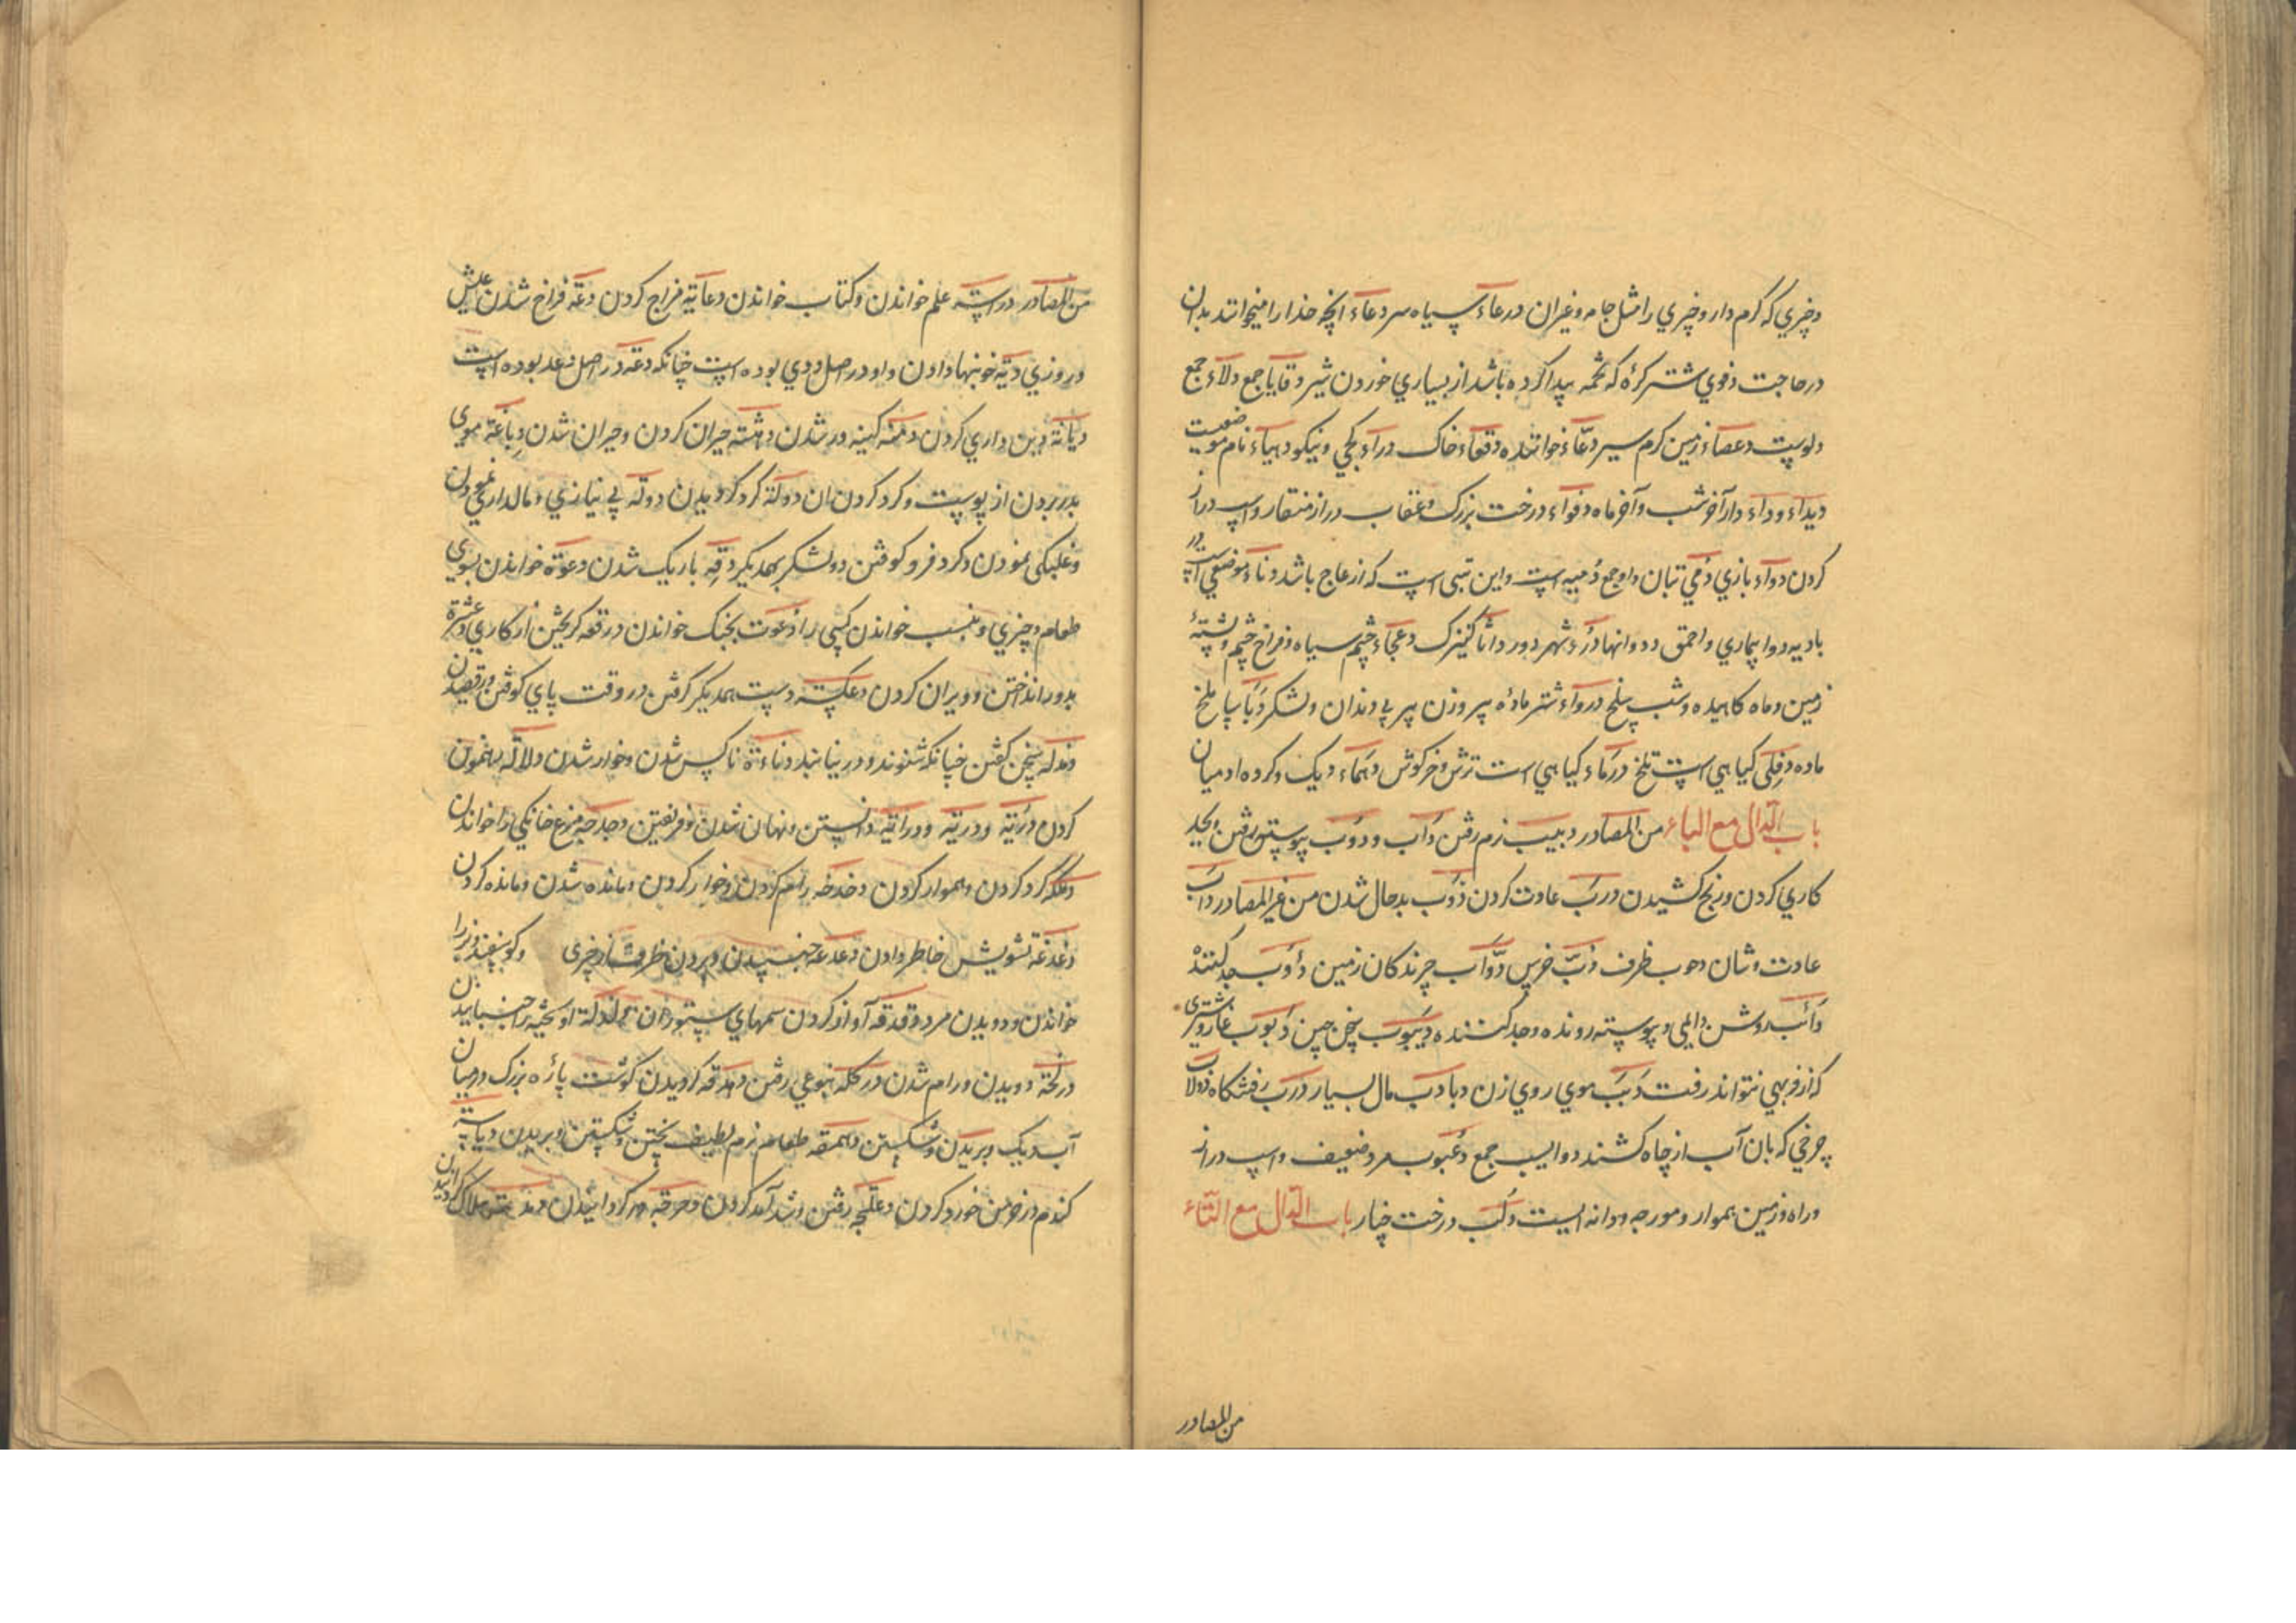 وچیزي که گرم دارد چیزي را مثل جامه وغیر ان درعاء سپیاه سر دعاء انچه خدا را میخوانند بدان
درحاجت دفوي شتر کرّه که تخمه پیدا کرده باشد از بسیاري خوردن شیر دقایا جمع دلاء جمع
دلوپت دعصاء زمین گرم سیر دعّاء خواننده دقعاء خاک دراء کجي ونیکو دهیاء نام موضعیست
دیداء وداء دار آخر شب وآخر ماه دفواء درخت بزرک وعقاب دراز منقار واسپ دراز
کردن دواء بازي دمي تبان واو جمع دمیه است واین تبی است که از عاج باشد دناء موضعي است در
بادیه دوا بیماري واحمق ودوانها درء شهر دور داثا کنیزک دعجاء چشم سیاه وفراخ چشم وپشتهٔ
زمین وماه کاهیده وشب سلخ درواء شتر مادهٔ پیر وزن پیر بي دندان ولشکر دبا سپا ملخ
ماده دفلی کیاهي است تلخ درماء کیاهي است ترش وخرکوش دهماء دیک وکروه ادمیان
باب الدال مع الباء من المصادر دبیب نرم رفتن دأب ودؤب پیوسته رفتن وبجد
کاري کردن ورنج کشیدن درب عادت کردن ذوب بدحال شدن من غیر المصادر دأب
عادت وشان دوب ظرف دبّ خرس دوّاب چرندکان زمین دؤب جد کنندهٔ
دائب روش دایمي وپیوسته رونده وجد کننده دیبوب سخن چین دبوب غار وشتري
که از فربهي نتواند رفت دبب موي روي زن دبادب مال بسیار درب رفتنکاه دولاب
چرخي که بان آب از چاه کشند دوالیب جمع دعبوب مرد ضعیف واسپ دراز
وراه وزمین هموار ومورچه ودانه ایست دلب درخت چنار باب الدال مع التاء
من المصادر
من المصادر دراسته علم خواندن وکتاب خواندن دعایة فراخ کردن دعة فراخ شدن عیش
وروزي دیة خونبها دادن واو در اصل ودي بوده است چنانکه دعة در اصل ودع بوده است
دیانة دین داري کردن دمنه کینه ور شدن دهشته حیران کردن وحیران شدن دباغة موي
بدر بردن از پوست وکرد کردن ان دولة کرد کردیدن دولة بي نیازي ومالداري نمودن
وغلبکی نمودن دکرد فرو کوفتن دولشکر بهمدیکر دقه باریک شدن دعوة خواندن بسوي
طعام وچیزي وبنسب خواندن کسی را دعوت بجنک خواندن درقعه کریختن از کاري دعثرة
بدور انداختن وویران کردن دعکسة دست همدیکر کرفتن در وقت پاي کوفتن ورقصیدن
دندله سخن کفتن چنانکه شنوند ودر نیابند دناءة ناکس شدن وخوار شدن دلالة راهنمون
کردن دریة ودریه ودرایة دانستن ونهان شدن وفریفتن دجدجة مرغ خانکي را خواندن
دکدکه کرد کردن وهموار کردن دخدخه رام کردن وخوار کردن ومانده شدن ومانده کردن
دغدغة تشویش خاطر دادن دعدعة جنبیدن وپر دن ظرف از چیزی وکوسفند وبز را
خواندن ودویدن مرد دقدقه آواز کردن سمهاي ستوران دلدلة اویخته را جنبانیدن
درلخة دویدن ورام شدن درکله بنوعي رفتن دهدقه کردیدن کوشت پاره بزرک درمیان
آب دیک وبریدن وشکستن دهمقه طعام نرم لطیف پختن وشکستن وبریدن دیاسه
کندم در خرمن خورد کردن دعلجه رفتن وشد آمد کردن دحرجة در کردانیدن